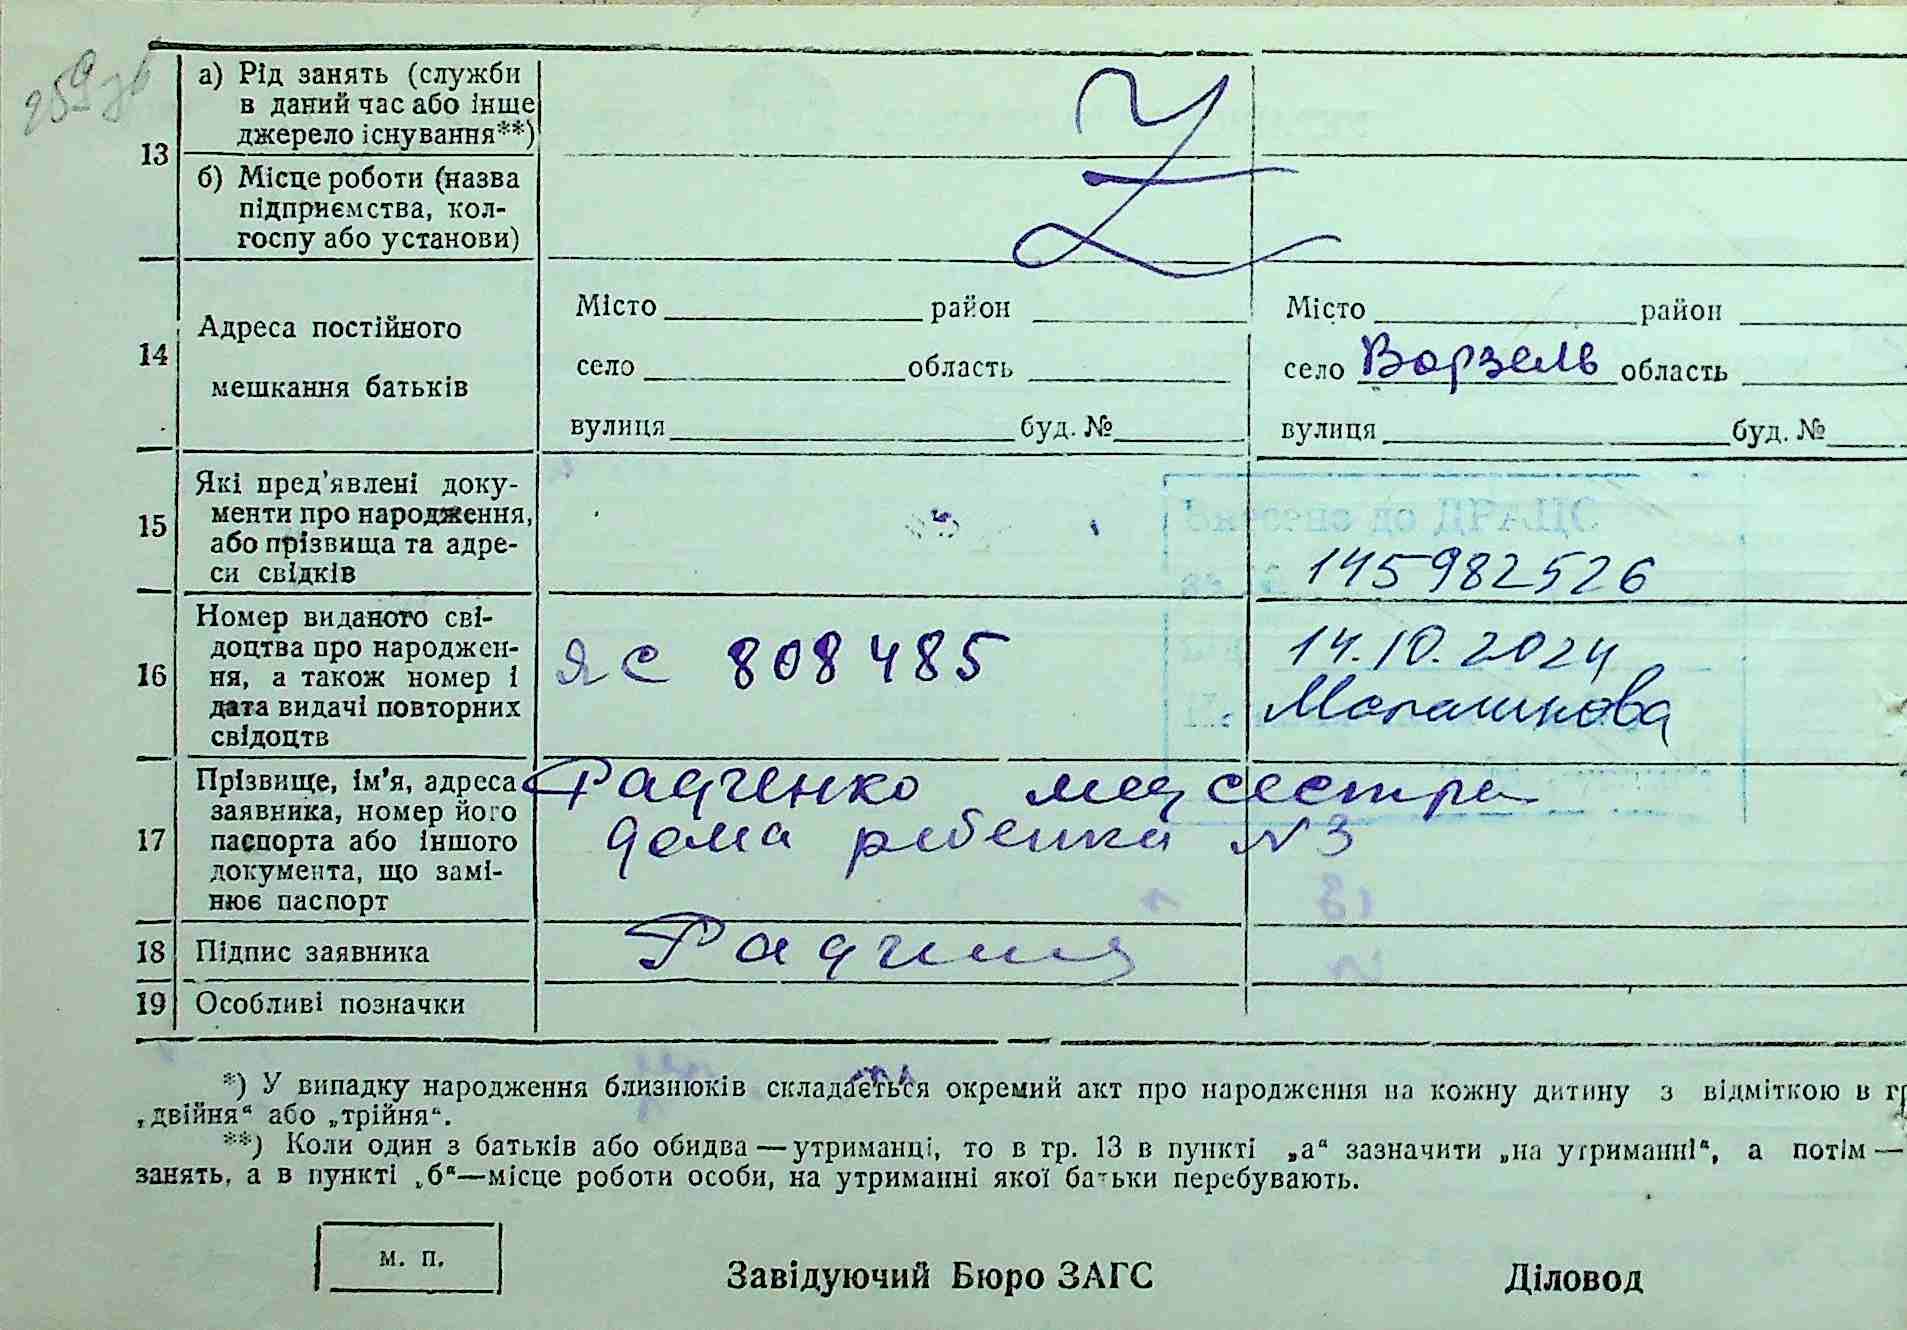 13
а) Рід занять (служби
в даний час або інше
джерело існування**)
б) Місце роботи (назва
підприємства, кол-
госпу або установи)
14
Адреса постійного
мешкання батьків
Місто район
село область
вулиця буд. №
Місто район
село Ворзель область
вулиця буд. №
15
Які пред'явлені доку-
менти про народження,
або прізвища та адре-
си свідків
Внесено до ДРАЦС
145982526
16
Номер виданого сві-
доцтва про народжен-
ня, а також номер і
дата видачі повторних
свідоцтв
ЯС 808485
14.10.2024
17
Прізвище, ім'я, адреса
заявника, номер його
паспорта або іншого
документа, що замі-
нює паспорт
Радченко медсестра
дома ребенка №3
18
Підпис заявника
19
Особливі позначки
*) У випадку народження близнюків складається окремий акт про народження на кожну дитину з відміткою в гр
„двійня“ або „трійня“.
**) Коли один з батьків або обидва — утриманці, то в гр. 13 в пункті „а“ зазначити „на утриманні“, а потім —
занять, а в пункті „б“—місце роботи особи, на утриманні якої батьки перебувають.
м. п.
Завідуючий Бюро ЗАГС
Діловод